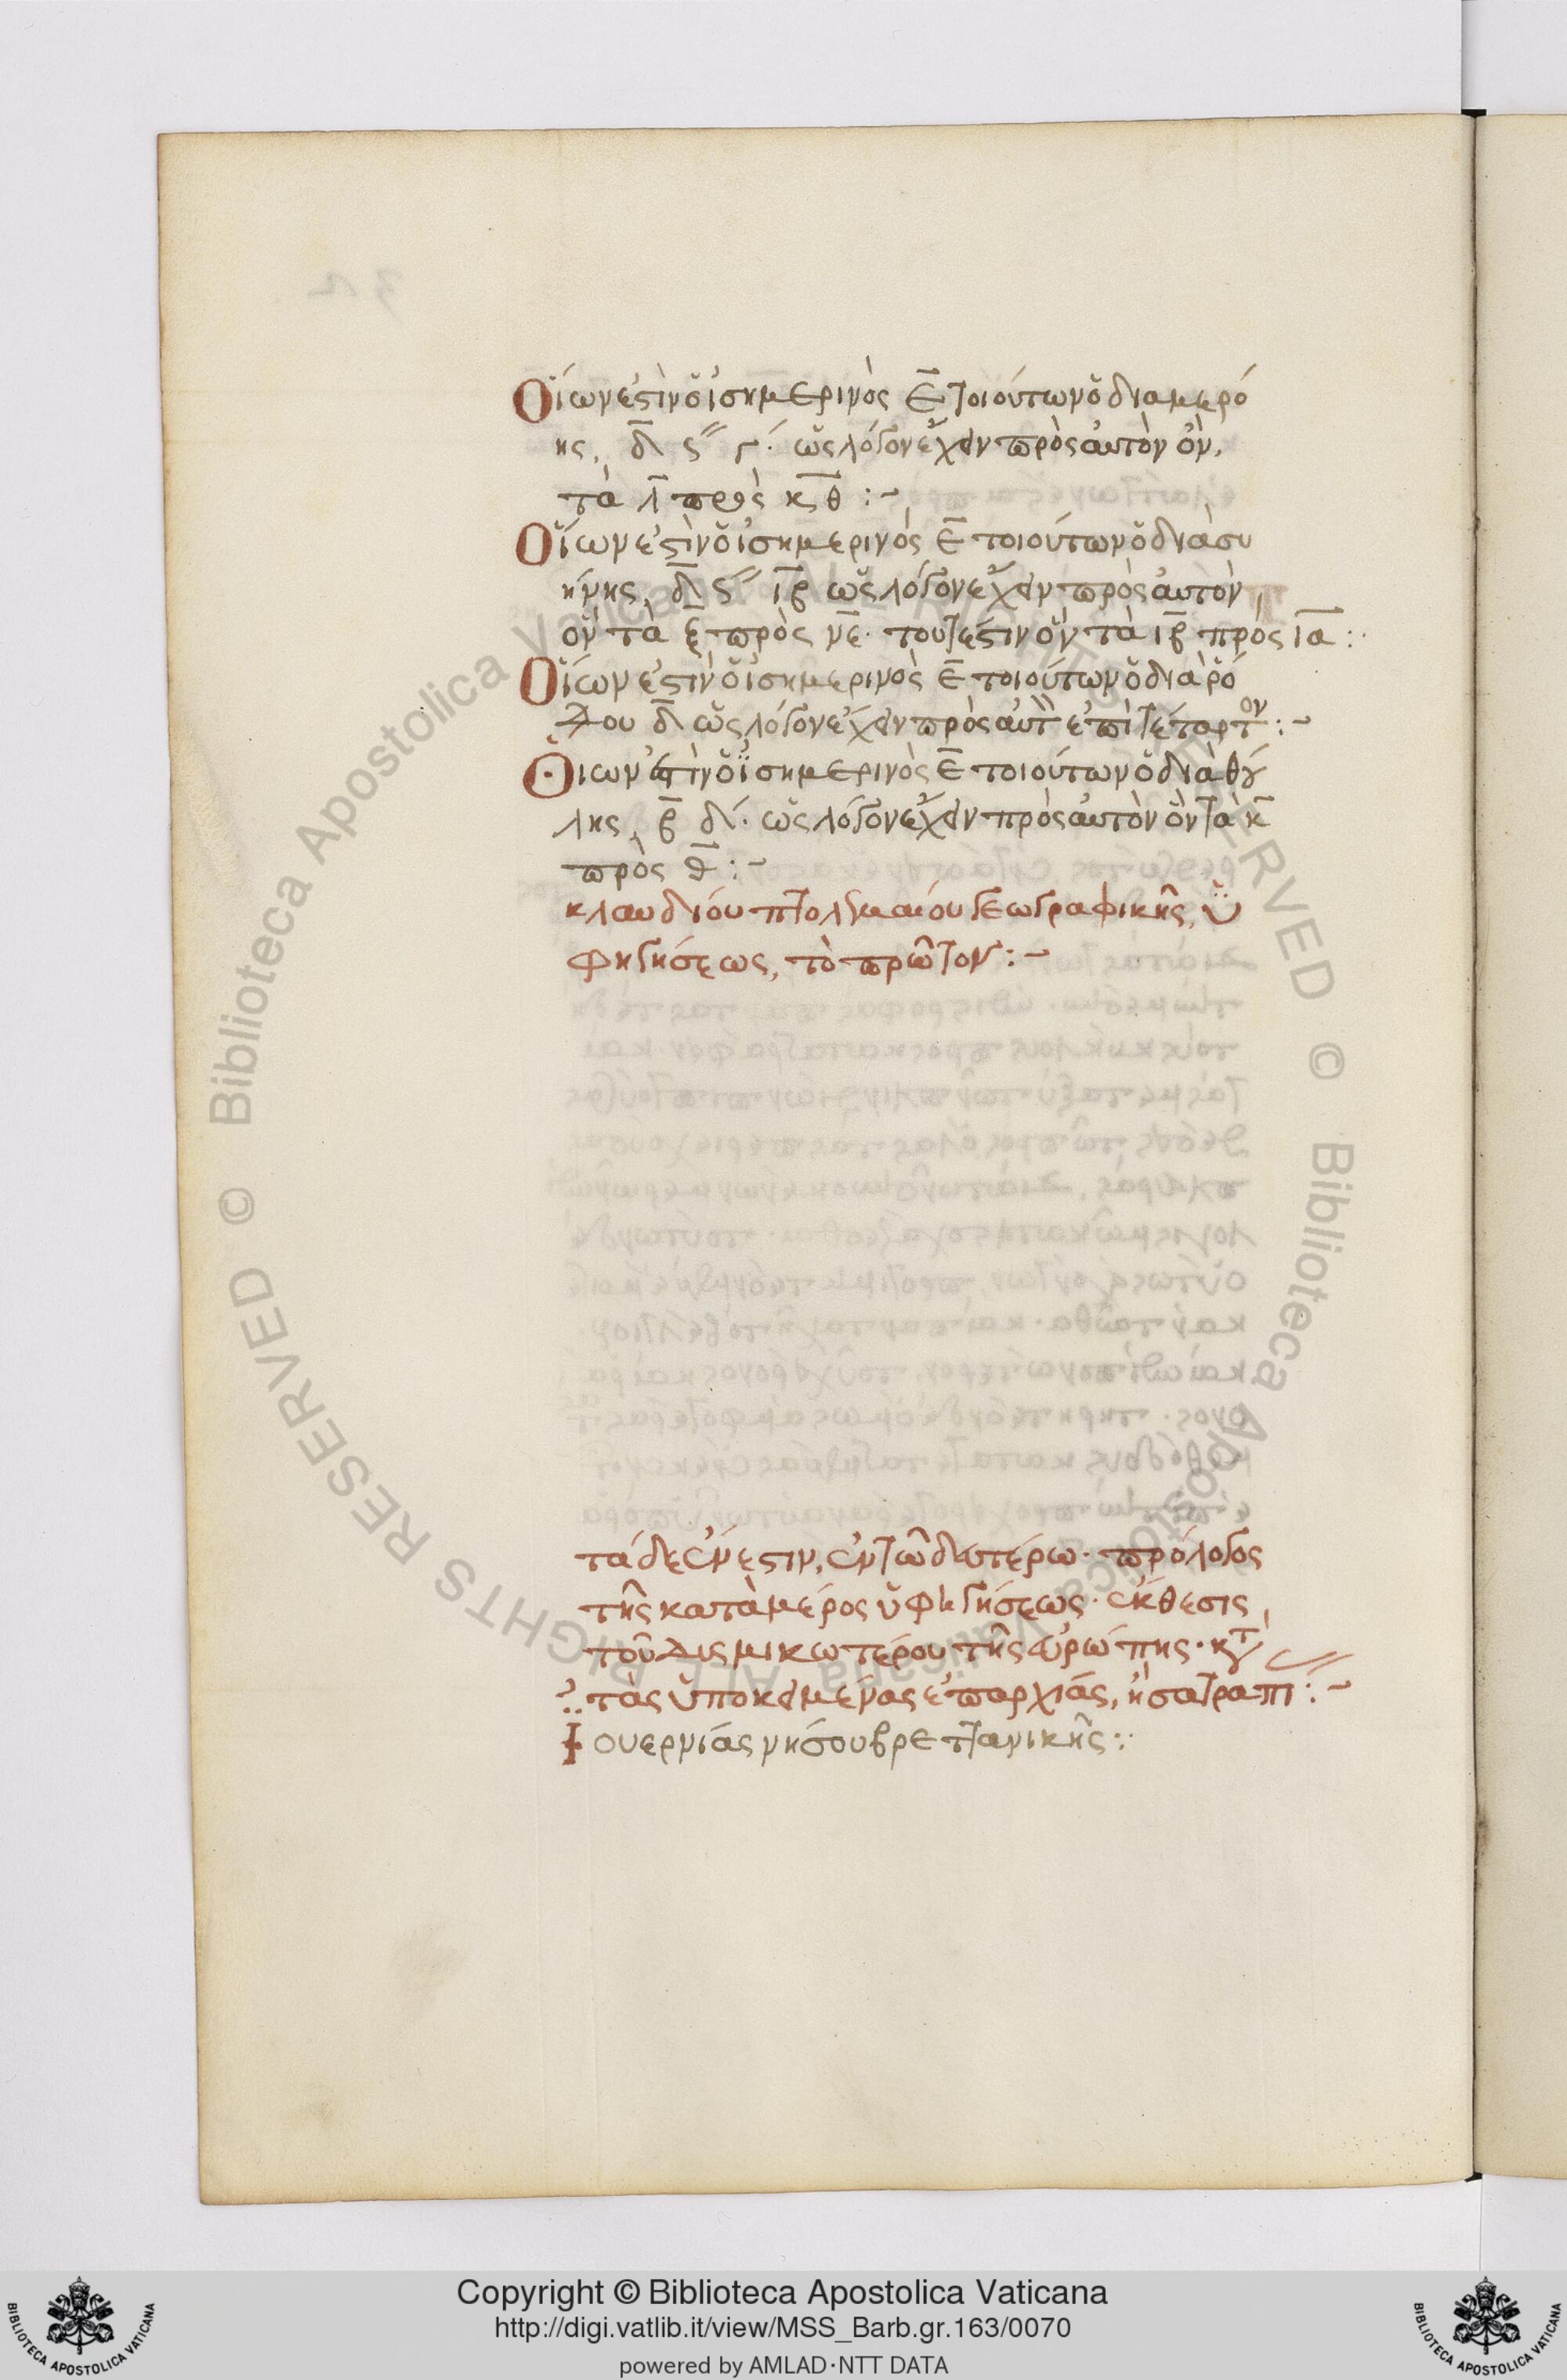 Οἵων ἐστὶν ὁ ἰσημερινὸς ε̅ τοιούτων ὁ διὰ μερό
ης, δ̅ ϛ″ γ· ὡς λόγον ἔχειν πρὸς αὐτὸν ὃν,
τὰ λ̅ πρὸς κ̅θ̅ :~
Οἵων ἐστὶν ὁ ἰσημερινὸς ε̅ τοιούτων ὁ διὰ συ
ήνης, δ̅ ϛ″ ι̅β̅ ὡς λόγον ἔχειν πρὸς αὐτὸν,
ὃν τὰ ξ̅ πρὸς ν̅ε̅· τουτέστιν ὃν τὰ ι̅β̅ πρὸς ι̅α̅ :·
Οἵων ἐστὶν ὁ ἰσημερινὸς ε̅ τοιούτων ὁ διὰ ῥό
δου δ̅ ὡς λόγον ἔχειν πρὸς αὐτ ἐπιτέταρτον :~
Οἵων ἐστὶν ὁ ἰσημερινὸς ε̅ τοιούτων ὁ διὰ θού
λης, β̅ δ· ὡς λόγον ἔχειν πρὸς αὐτὸν ὃν τὰ κ̅
πρὸς θ̅ :~
κλαυδίου πτολεμαίου γεωγραφικῆς, ὑ
φηγήσεως, τὸ πρῶτον :~
τάδε ἔνεστιν, ἐν τῶ δευτέρω· πρόλογος
τῆς κατὰ μέρος ὑφηγήσεως· ἔκθεσις,
τοῦ δυσμικωτέρου τῆς εὐρώπης· κτ
τὰς ὑποκειμένας ἐπαρχίας, ἢ σατραπ :~
Ιουερνίας νήσου βρεττανικῆς :·
Copyright © Biblioteca Apostolica Vaticana
http://digi.vatlib.it/view/MSS_Barb.gr.163/0070
powered by AMLAD·NTT DATA